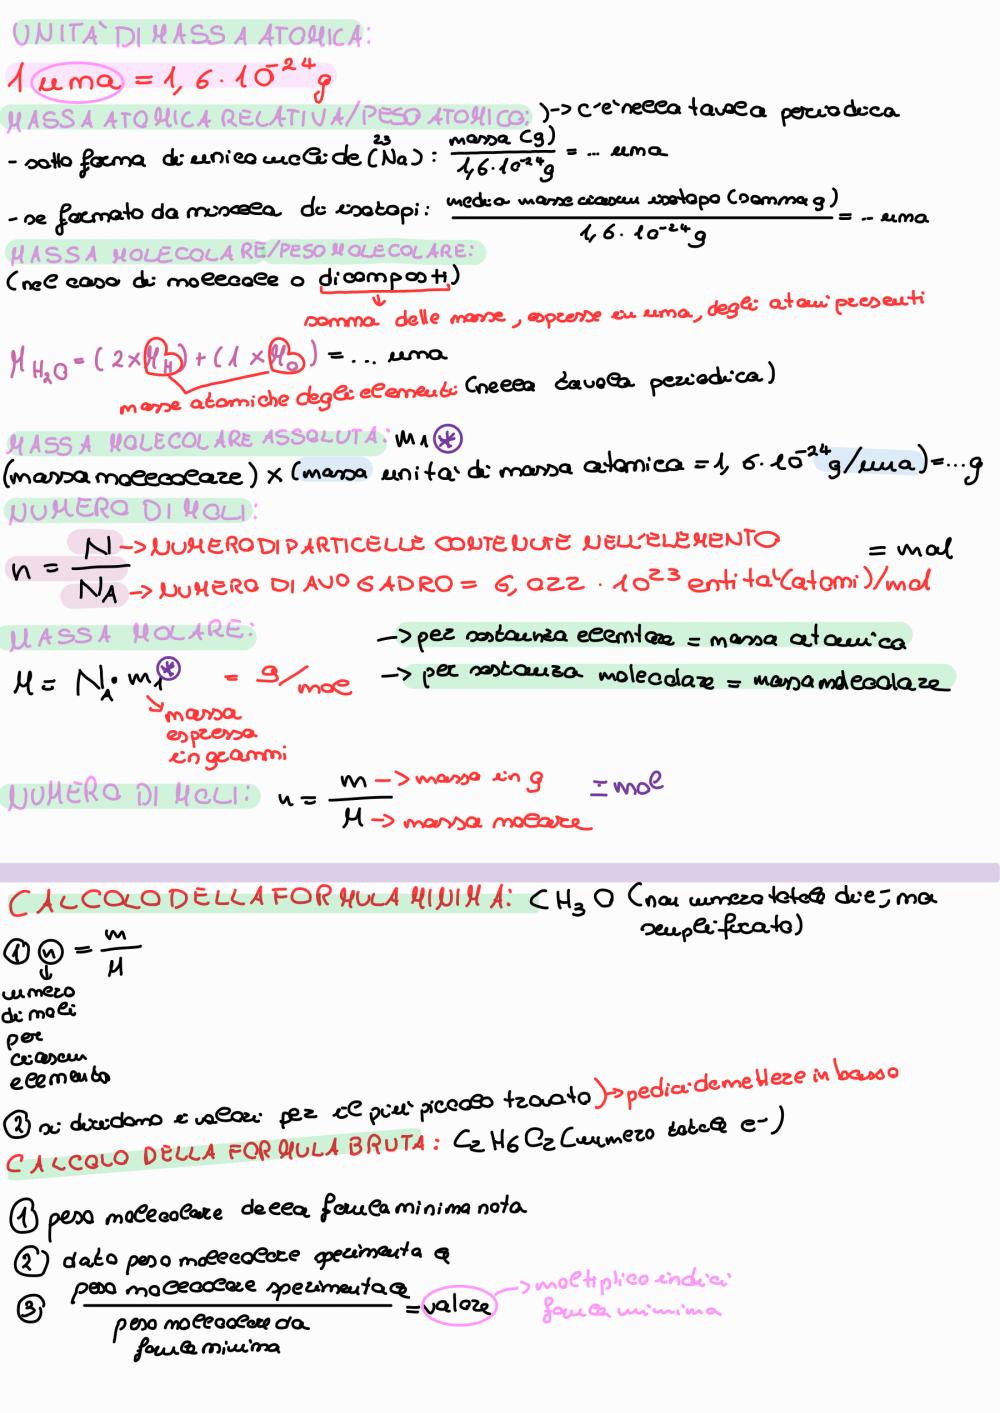 UNITÀ DI MASSA ATOMICA:
1 uma = 1,6·10⁻²⁴g
MASSA ATOMICA RELATIVA/PESO ATOMICO: )-> c'è nella tavola periodica
- sotto forma di unico nuclide (²³Na): massa (g) / 1,6·10⁻²⁴g = ... uma
- se formato da miscela di isotopi: media masse ciascun isotopo (somma g) / 1,6·10⁻²⁴g = .. uma
MASSA MOLECOLARE/PESO MOLECOLARE:
(nel caso di molecole o di composti)
somma delle masse, espresse in uma, degli atomi presenti
M H₂O = (2×M_H) + (1×M_O) = ... uma
masse atomiche degli elementi (nella tavola periodica)
MASSA MOLECOLARE ASSOLUTA: m₁ *
(massa molecolare) × (massa unità di massa atomica = 1,6·10⁻²⁴ g/uma) = ...g
NUMERO DI MOLI:
n = N / N_A = mol
N -> NUMERO DI PARTICELLE CONTENUTE NELL'ELEMENTO
N_A -> NUMERO DI AVOGADRO = 6,022 · 10²³ entità (atomi)/mol
MASSA MOLARE: -> per sostanza elemtare = massa atomica
M = N_A · m₁ * = g/mol -> per sostanza molecolare = massa molecolare
massa
espressa
in grammi
NUMERO DI MOLI: n = m / M = mol
m -> massa in g
M -> massa molare
CALCOLO DELLA FORMULA MINIMA: CH₃O (non numero totale di e⁻, ma
semplificato)
① n = m / M
numero
di moli
per
ciascun
elemento
② si dividono i valori per il più piccolo trovato )-> pedici da mettere in basso
CALCOLO DELLA FORMULA BRUTA: C₂H₆C₂ (numero totale e⁻)
① peso molecolare della formula minima nota
② dato peso molecolare sperimentale
③ peso molecolare sperimentale / peso molecolare da formula minima = valore -> moltiplico indici
formula minima